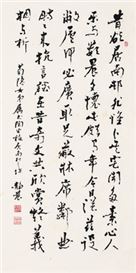 昔欲居南邨非為卜其宅聞多素心人
樂與數晨夕懷此頗有年今日從茲役
敝廬何必廣取足蔽牀席鄰曲
時時来抗言談在昔奇文共欣賞疑義
相與析